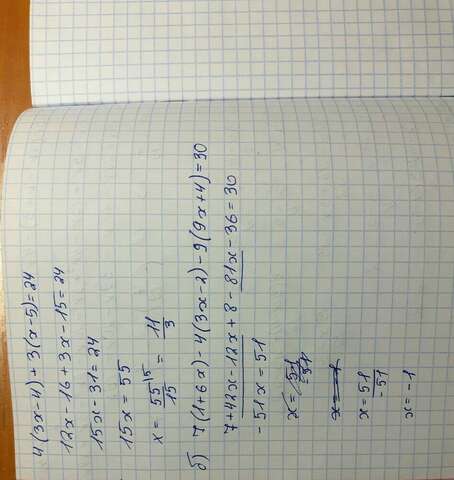 4(3x-4)+3(x-5)=24
12x-16+3x-15=24
15x-31=24
15x=55
x=55|5/15=11/3
б) 7(1+6x)-4(3x-2)-9(9x+4)=30
7+42x-12x+8-81x-36=30
-51x=51
x=51/-51
x=-1
x=51/-51
x=-1